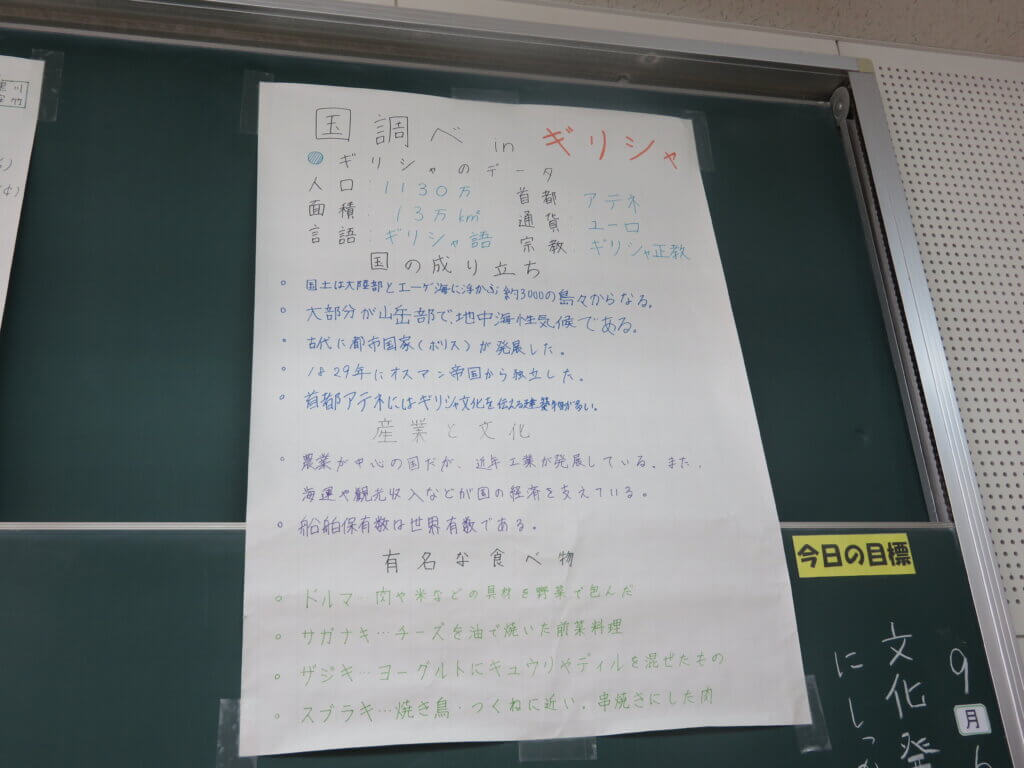 国調べ in ギリシャ
ギリシャのデータ
人口:1130万 首都:アテネ
面積:13万km² 通貨:ユーロ
言語:ギリシャ語 宗教:ギリシャ正教
国の成り立ち
・国土は大陸部とエーゲ海に浮かぶ約3000の島々からなる。
・大部分が山岳部で、地中海性気候である。
・古代に都市国家(ポリス)が発展した。
・1829年にオスマン帝国から独立した。
・首都アテネにはギリシャ文化を伝える建築物が多い。
産業と文化
・農業が中心の国だが、近年工業が発展している、また、
海運や観光収入などが国の経済を支えている。
・船舶保有数は世界有数である。
有名な食べ物
・ドルマ…肉や米などの具材を野菜で包んだ
・サガナキ…チーズを油で焼いた前菜料理
・ザジキ…ヨーグルトにキュウリやディルを混ぜたもの
・スブラキ…焼き鳥・つくねに近い、串焼きにした肉
今日の目標
9
月
文化発
にしっか